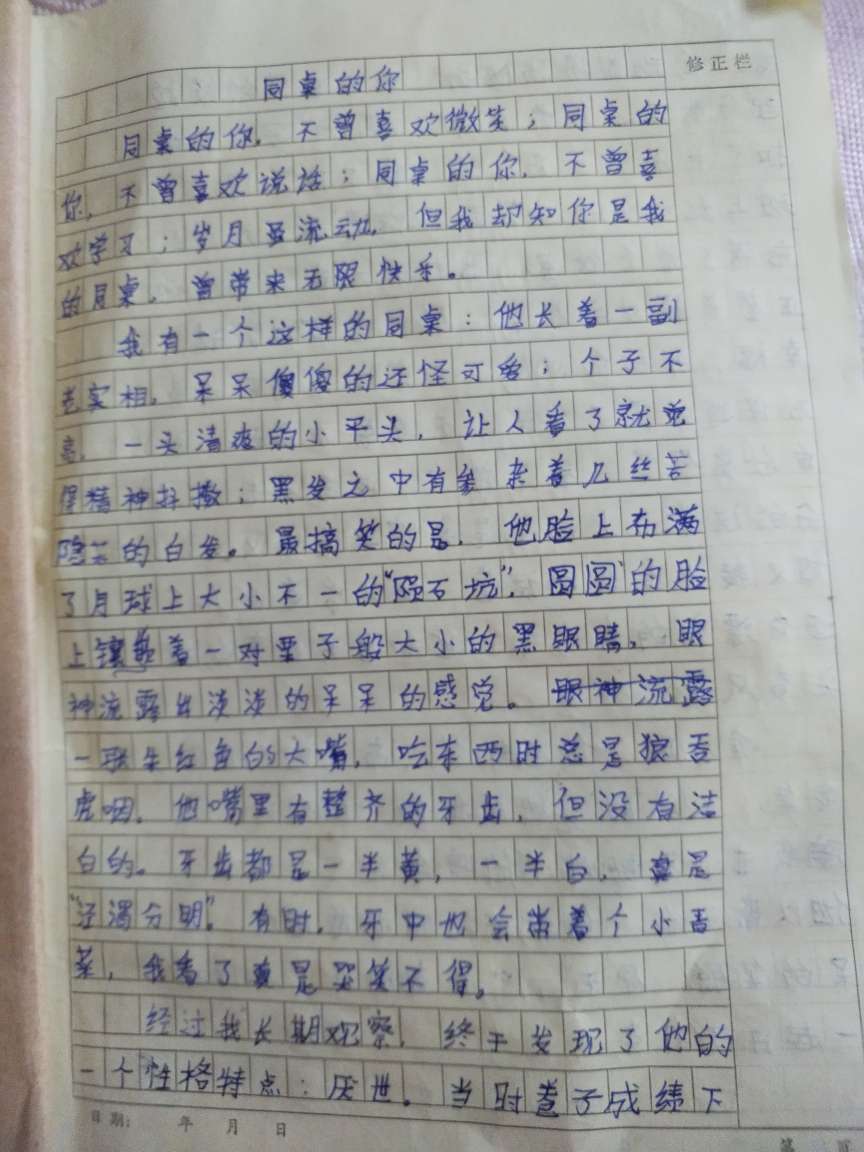 同桌的你
修正栏
同桌的你，不曾喜欢微笑；同桌的
你，不曾喜欢说话；同桌的你，不曾喜
欢学习；岁月虽流动，但我却知你是我
的同桌，曾带来无限快乐。
我有一个这样的同桌：他长着一副
老实相，呆呆傻傻的还怪可爱；个子不
高，一头清爽的小平头，让人看了就觉
得精神抖擞；黑发之中有参杂着几丝若
隐若的白发。最搞笑的是，他脸上布满
了月球上大小不一的“陨石坑”，圆圆的脸
上镶着一对栗子般大小的黑眼睛，眼
神流露出淡淡的呆呆的感觉。眼神流露
一张朱红色的大嘴，吃东西时总是狼吞
虎咽。他嘴里有整齐的牙齿，但没有洁
白的。牙齿都是一半黄，一半白，真是
“泾渭分明”。有时，牙中也会带着个小香
菜，我看了真是哭笑不得。
经过我长期观察，终于发现了他的
一个性格特点：厌世。当时卷子成绩下
日期： 年 月 日
第 页